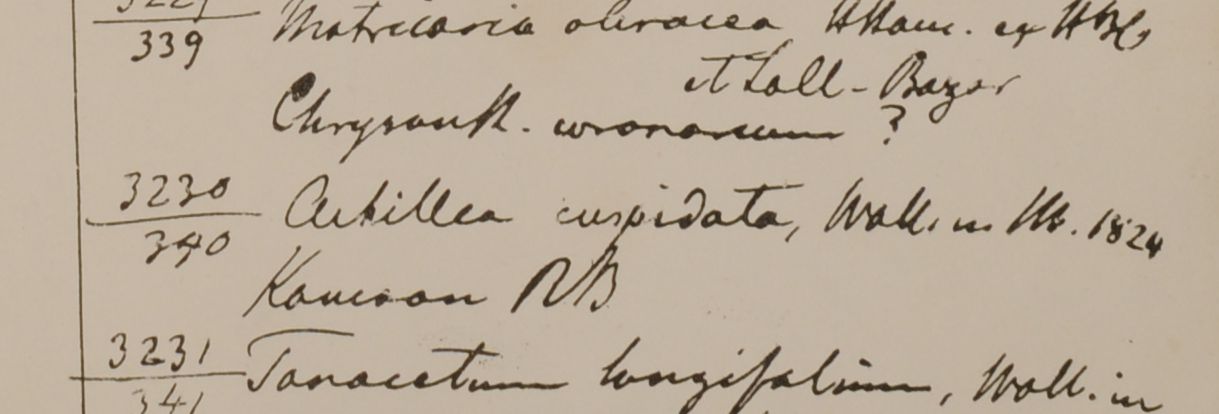 3229
339 Matricaria oleracea HHam. ex HBC,
et Lall-Bazar
Chrysanth. coronarium ?
3230
340 Achillea cuspidata, Wall. in Hb. 1824
Kamaon RB
3231
341 Tanacetum longifolium, Wall. in